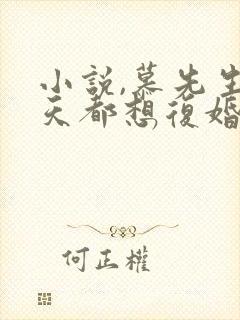 小説,慕先生
天都想復婚
何正權